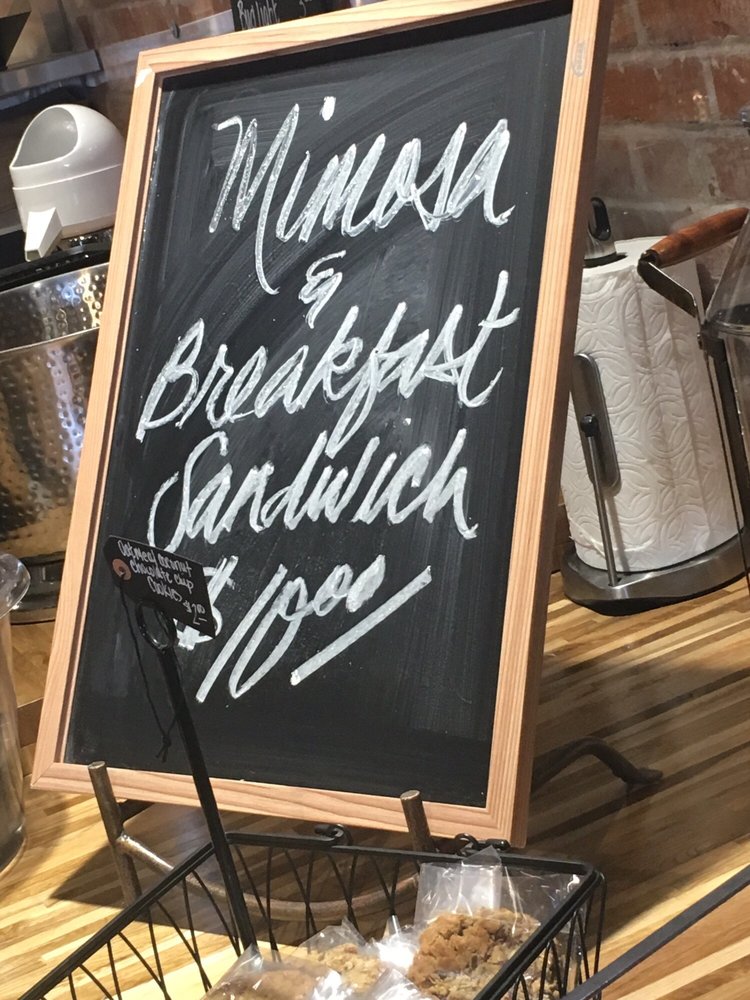 Mimosa
&
Breakfast
Sandwich
$10.00
Oatmeal Coconut
Chocolate Chip
Cookies
Bud Light